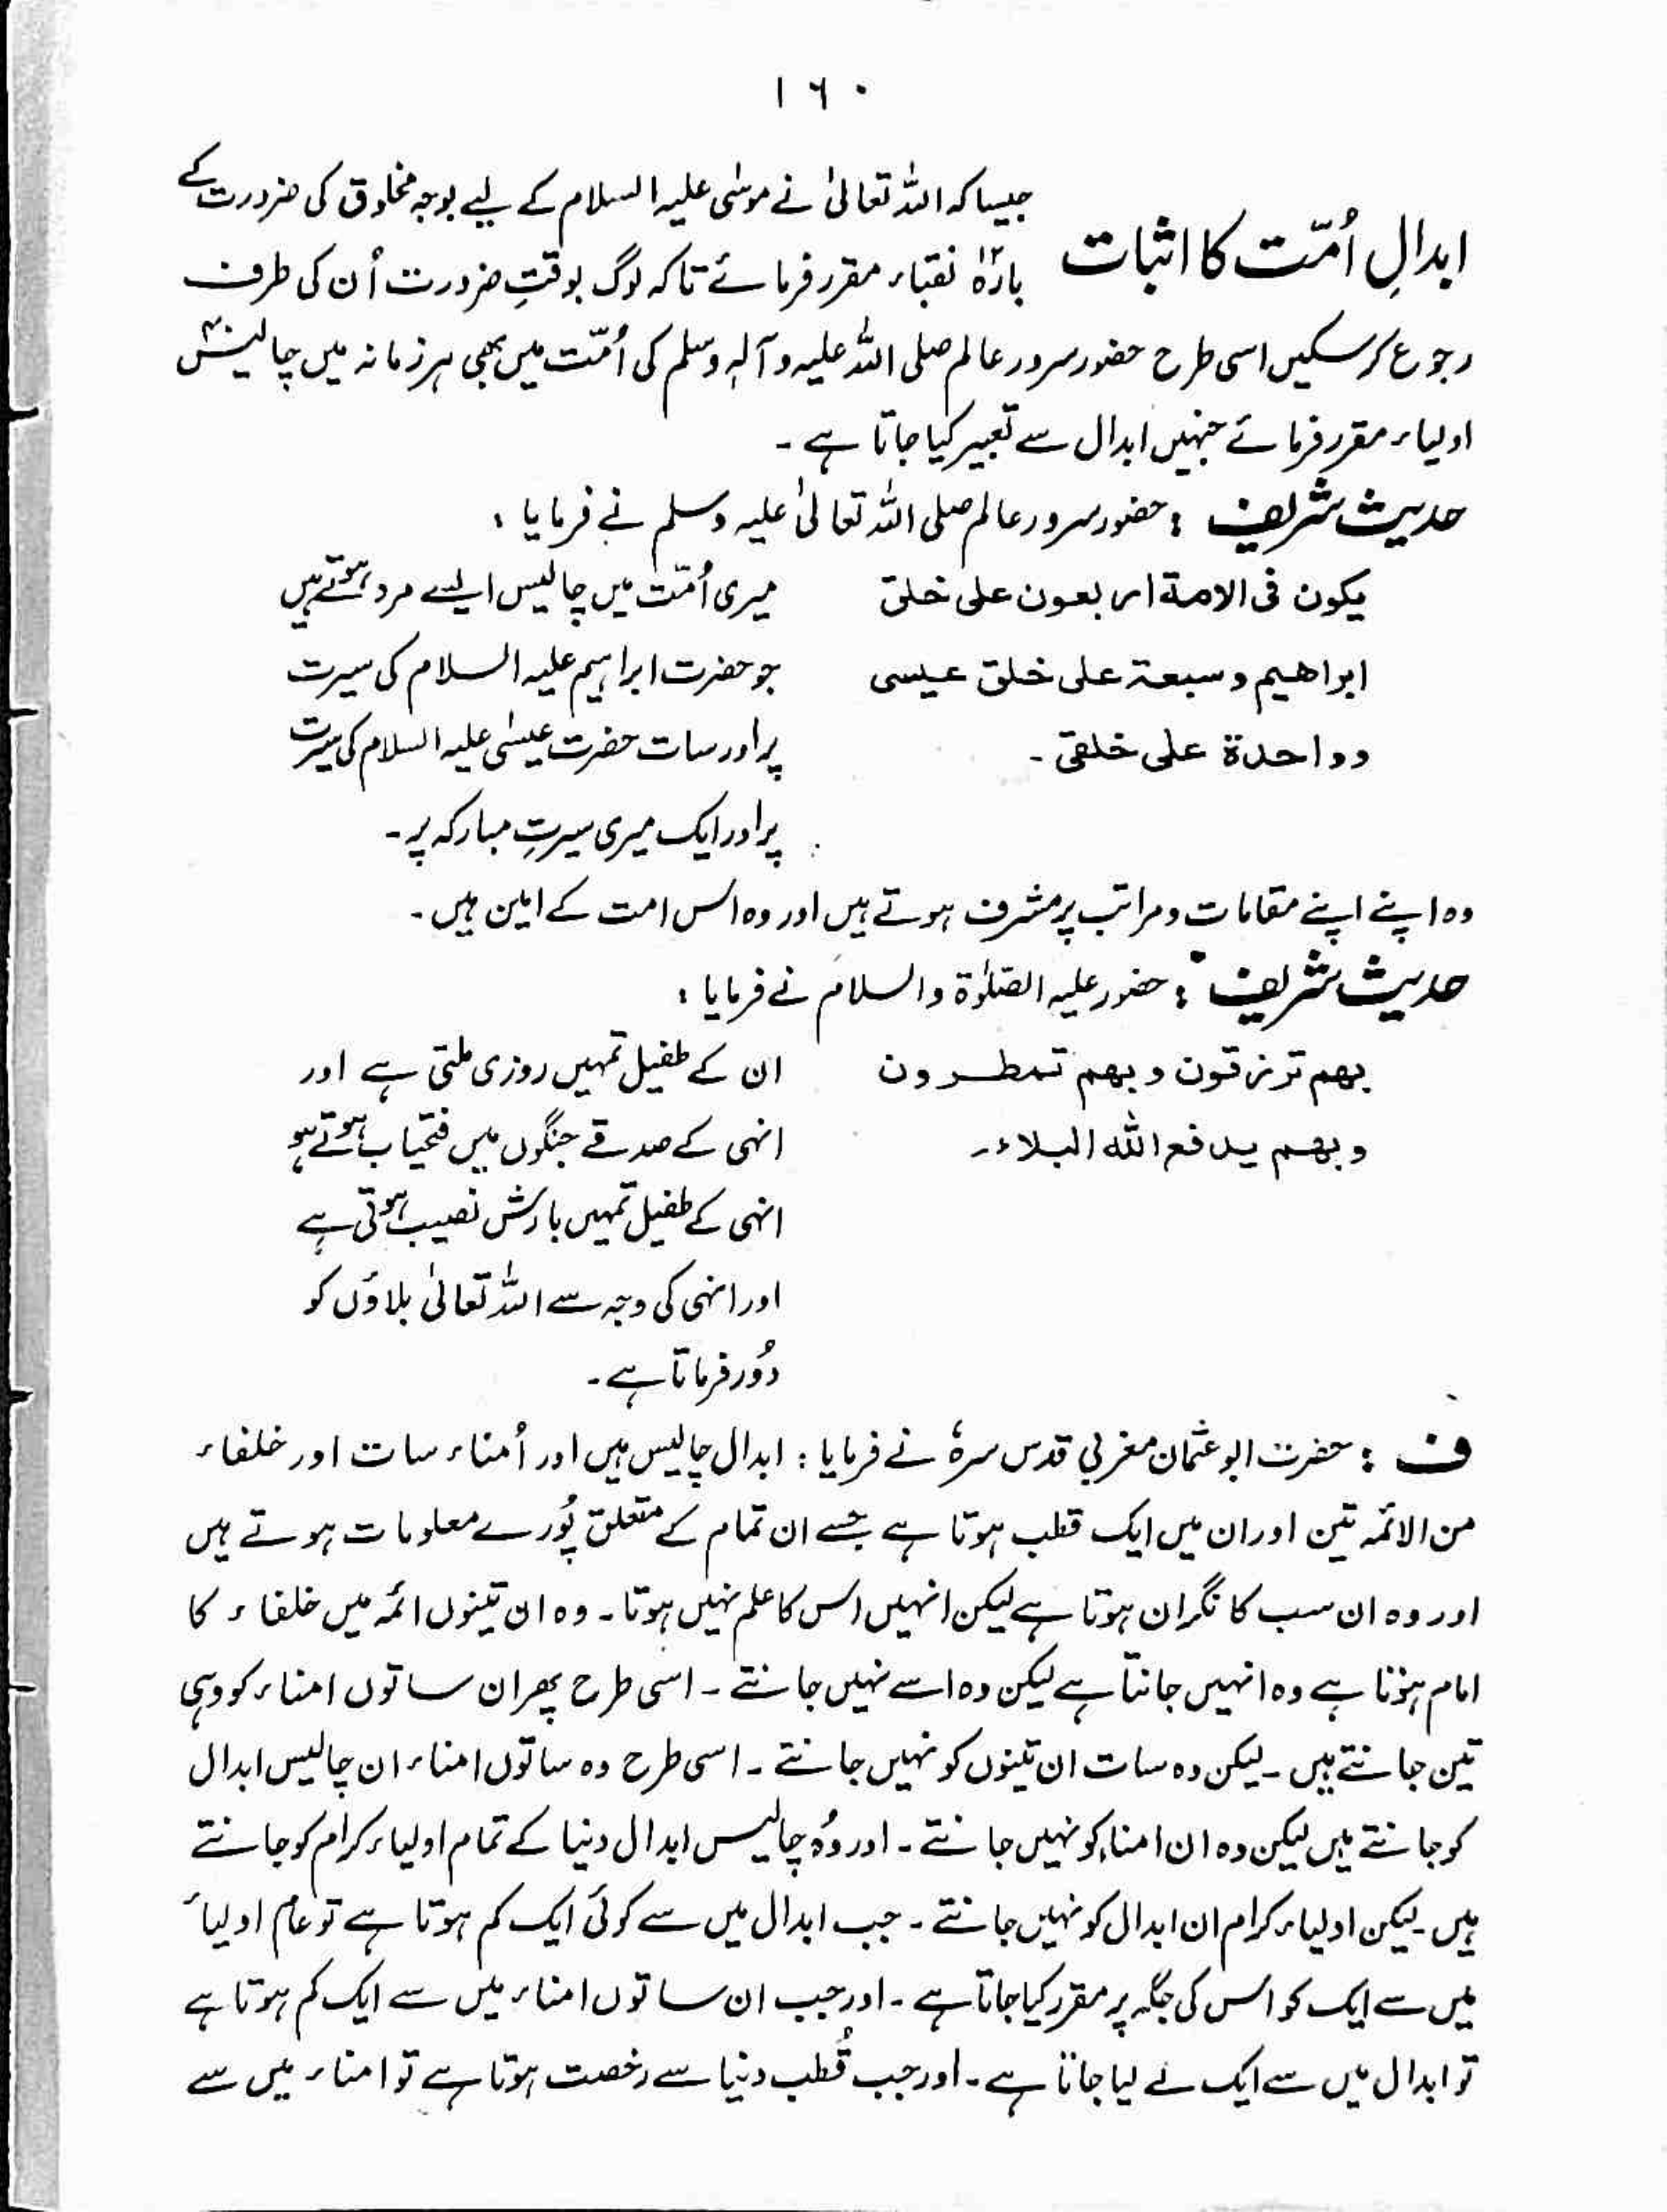 ۱۶۰
جیسا کہ اللہ تعالیٰ نے موسٰی علیہ السلام کے لیے بوجہ مخلوق کی ضرورت کے
ابدالِ اُمّت کا اثبات
بارہ نقباء مقرر فرمائے تاکہ لوگ بوقتِ ضرورت اُن کی طرف
رجوع کرسکیں اسی طرح حضور سرور عالم صلی اللہ علیہ وآلہٖ وسلم کی اُمّت میں بھی ہر زمانہ میں چالیس
اولیاء مقرر فرمائے جنہیں ابدال سے تعبیر کیا جاتا ہے ۔
حدیث شریف : حضور سرور عالم صلی اللہ تعالیٰ علیہ وسلم نے فرمایا :
یکون فی الامة اربعون علی خلق
میری اُمّت میں چالیس ایسے مرد ہوتے ہیں
ابراھیم وسبعة علی خلق عیسی
جو حضرت ابراہیم علیہ السلام کی سیرت
وواحدة علی خلقی ۔
پر اور سات حضرت عیسٰی علیہ السلام کی سیرت
پر اور ایک میری سیرتِ مبارکہ پر ۔
وہ اپنے اپنے مقامات و مراتب پر مشرف ہوتے ہیں اور وہ اس امت کے امین ہیں ۔
حدیث شریف : حضور علیہ الصلوٰۃ والسلام نے فرمایا :
بھم ترزقون وبھم تمطرون
ان کے طفیل تمہیں روزی ملتی ہے اور
وبھم یدفع اللہ البلاء ۔
انہی کے صدقے جنگوں میں فتحیاب ہوتے ہو
انہی کے طفیل تمہیں بارش نصیب ہوتی ہے
اور انہی کی وجہ سے اللہ تعالیٰ بلاؤں کو
دُور فرماتا ہے ۔
ف : حضرت ابو عثمان مغربی قدس سرہٗ نے فرمایا : ابدال چالیس ہیں اور اُمناء سات اور خلفاء
من الائمہ تین اور ان میں ایک قطب ہوتا ہے جسے ان تمام کے متعلق پُورے معلومات ہوتے ہیں
اور وہ ان سب کا نگران ہوتا ہے لیکن انہیں اس کا علم نہیں ہوتا ۔ وہ ان تینوں ائمہ میں خلفاء کا
امام ہوتا ہے وہ انہیں جانتا ہے لیکن وہ اسے نہیں جانتے ۔ اسی طرح پھر ان ساتوں امناء کو وہی
تین جانتے ہیں ۔ لیکن وہ سات ان تینوں کو نہیں جانتے ۔ اسی طرح وہ ساتوں امناء ان چالیس ابدال
کو جانتے ہیں لیکن وہ ان امناء کو نہیں جانتے ۔ اور وُہ چالیس ابدال دنیا کے تمام اولیاء کرام کو جانتے
ہیں ۔ لیکن اولیاء کرام ان ابدال کو نہیں جانتے ۔ جب ابدال میں سے کوئی ایک کم ہوتا ہے تو عام اولیاء
میں سے ایک کو اس کی جگہ پر مقرر کیا جاتا ہے ۔ اور جب ان ساتوں امناء میں سے ایک کم ہوتا ہے
تو ابدال میں سے ایک لے لیا جاتا ہے ۔ اور جب قُطب دنیا سے رخصت ہوتا ہے تو امناء میں سے